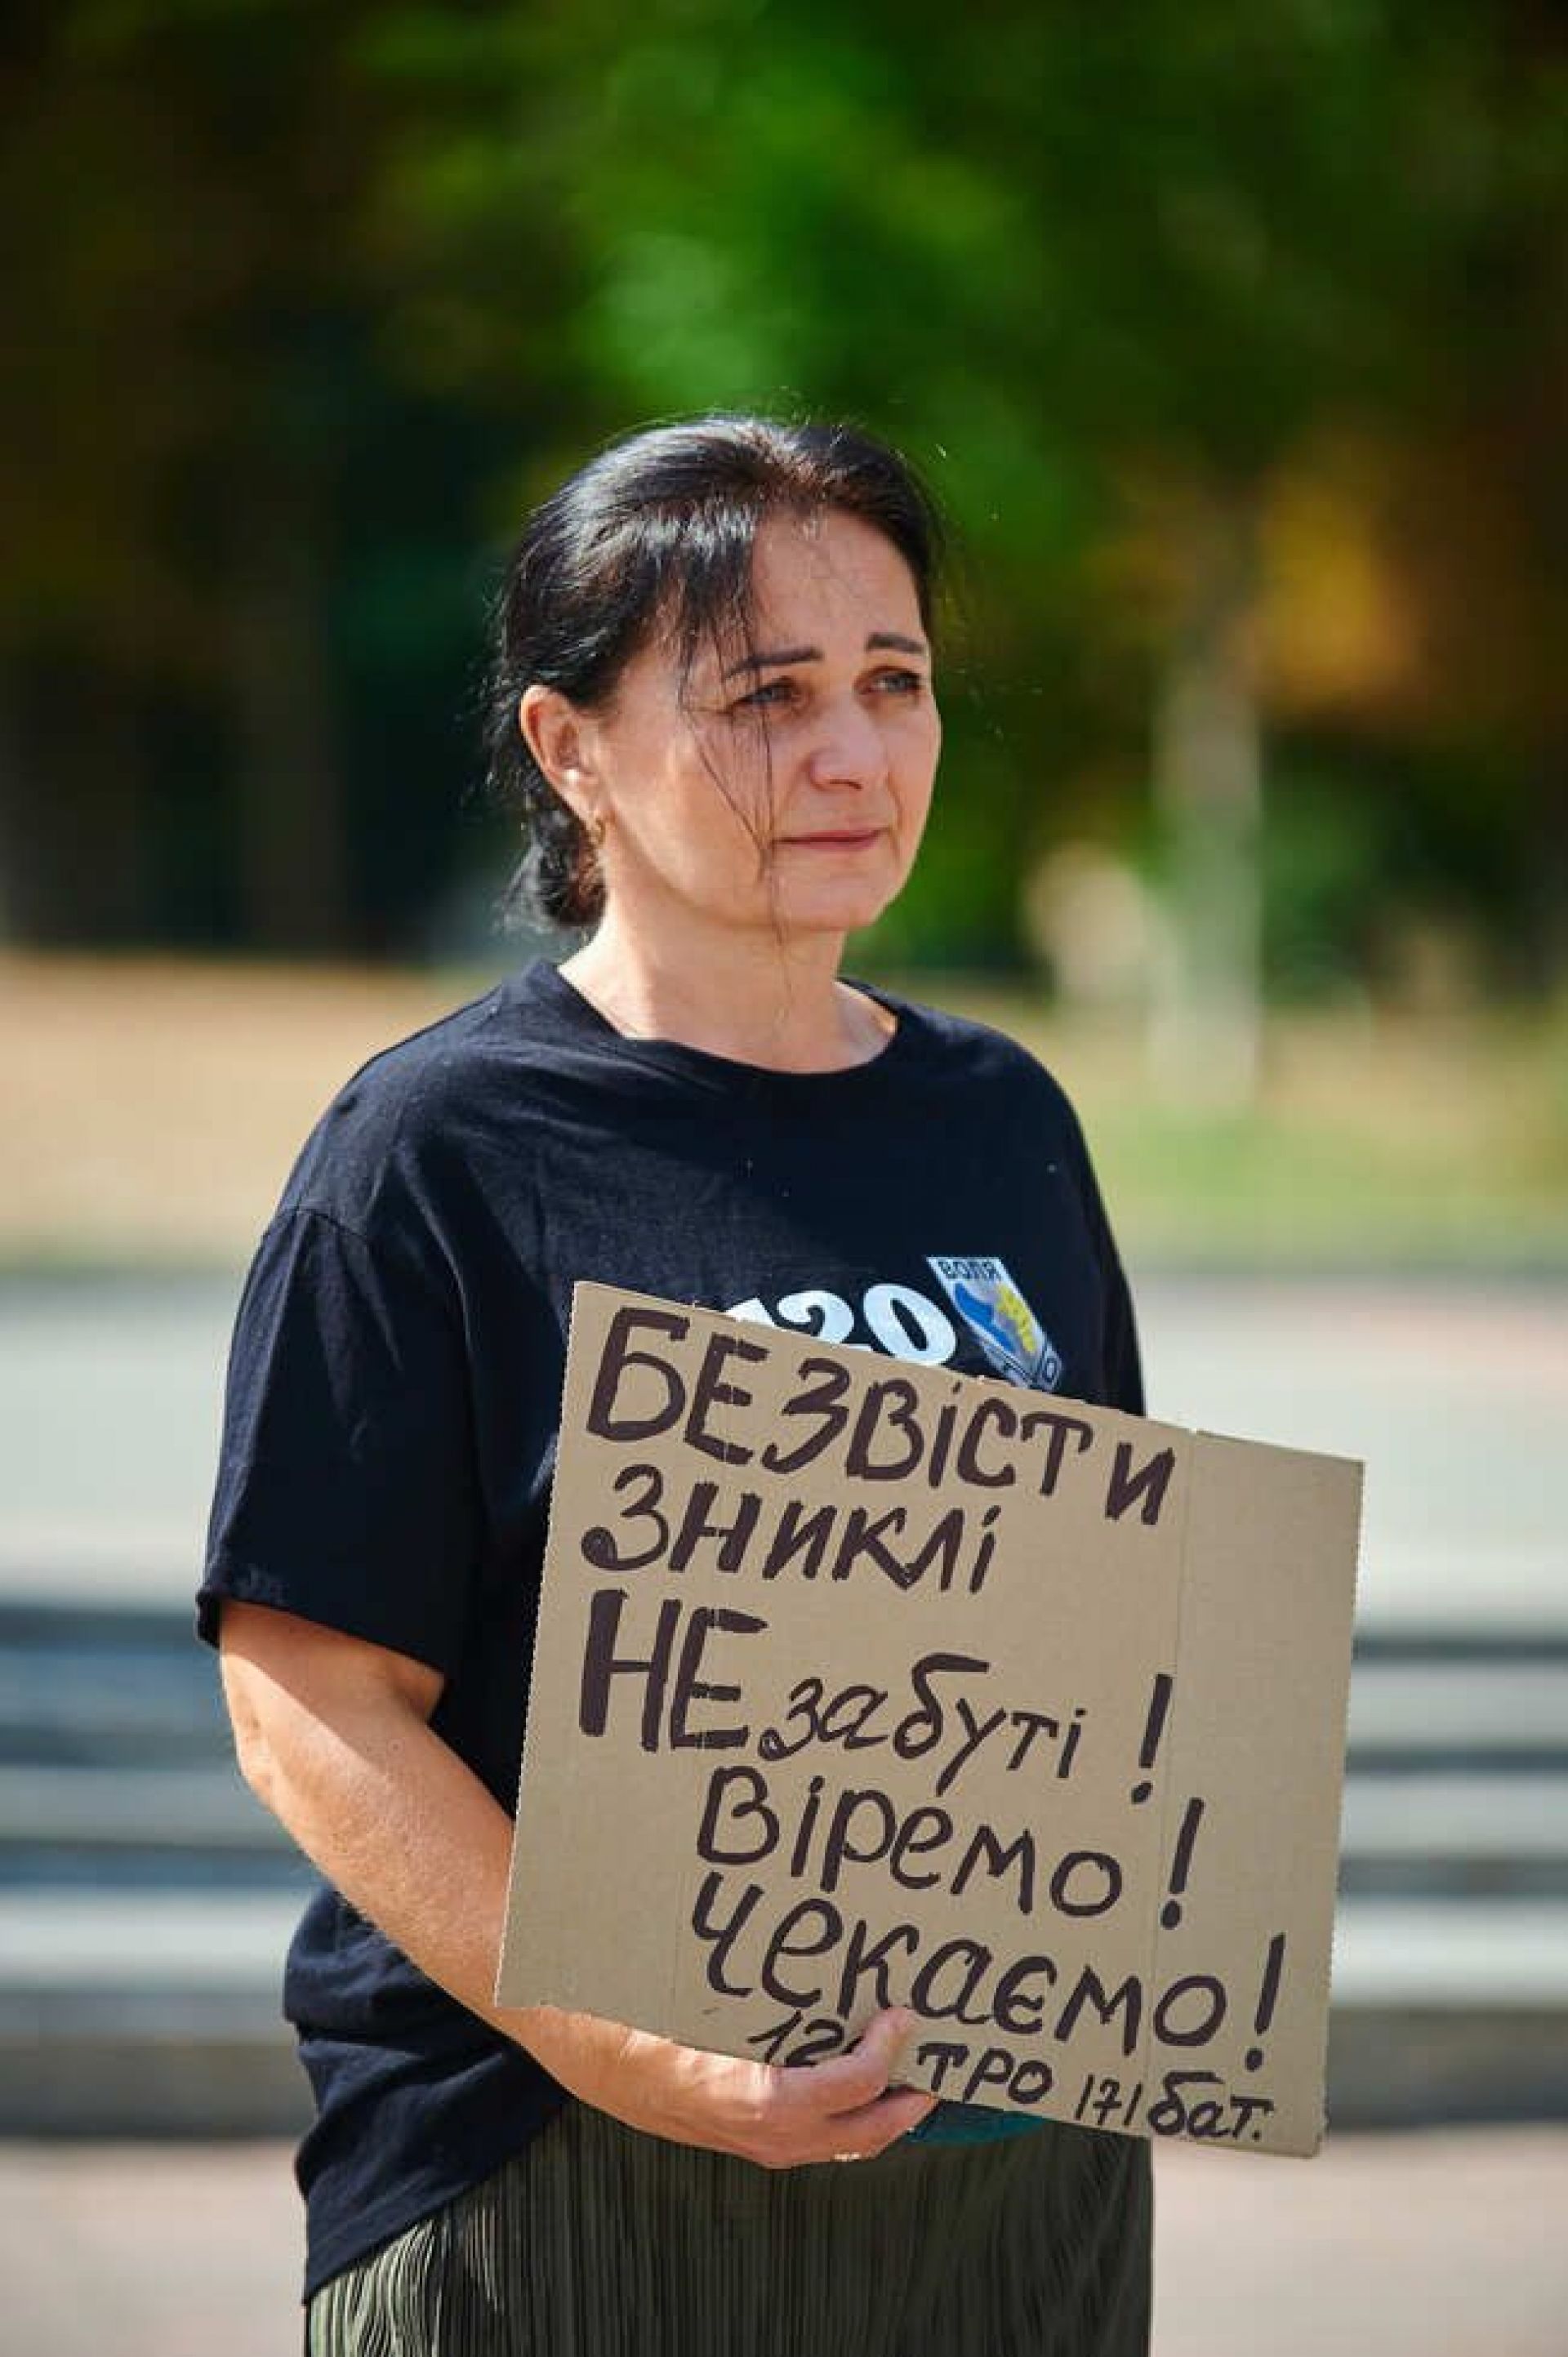 ВОЛЯ
120
БЕЗВІСТИ
ЗНИКЛІ
НЕ забуті!
Віремо!
Чекаємо!
ТРО 171 бат.